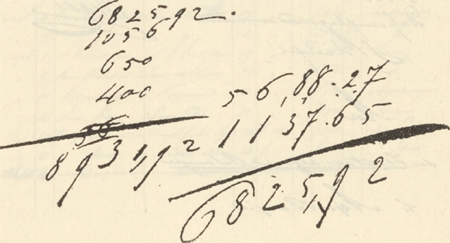 682592.
1056
650
400
56
8931,92
56,88.27
1137.65
6825,92